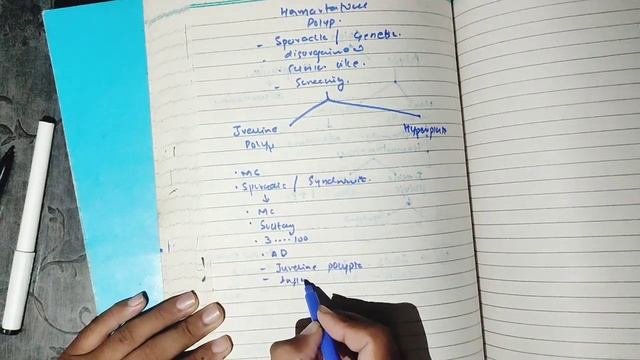 Hamartatous
Polyp.
- Sporadic / Genetic.
- disorganised
- Tumor like.
- Screening.
Juvenile Hyperplastic
Polyp
• MC
• Sporadic / Syndromic.
↓
• MC
• Solitary
• 3....100
• AD
- Juvenile polypts